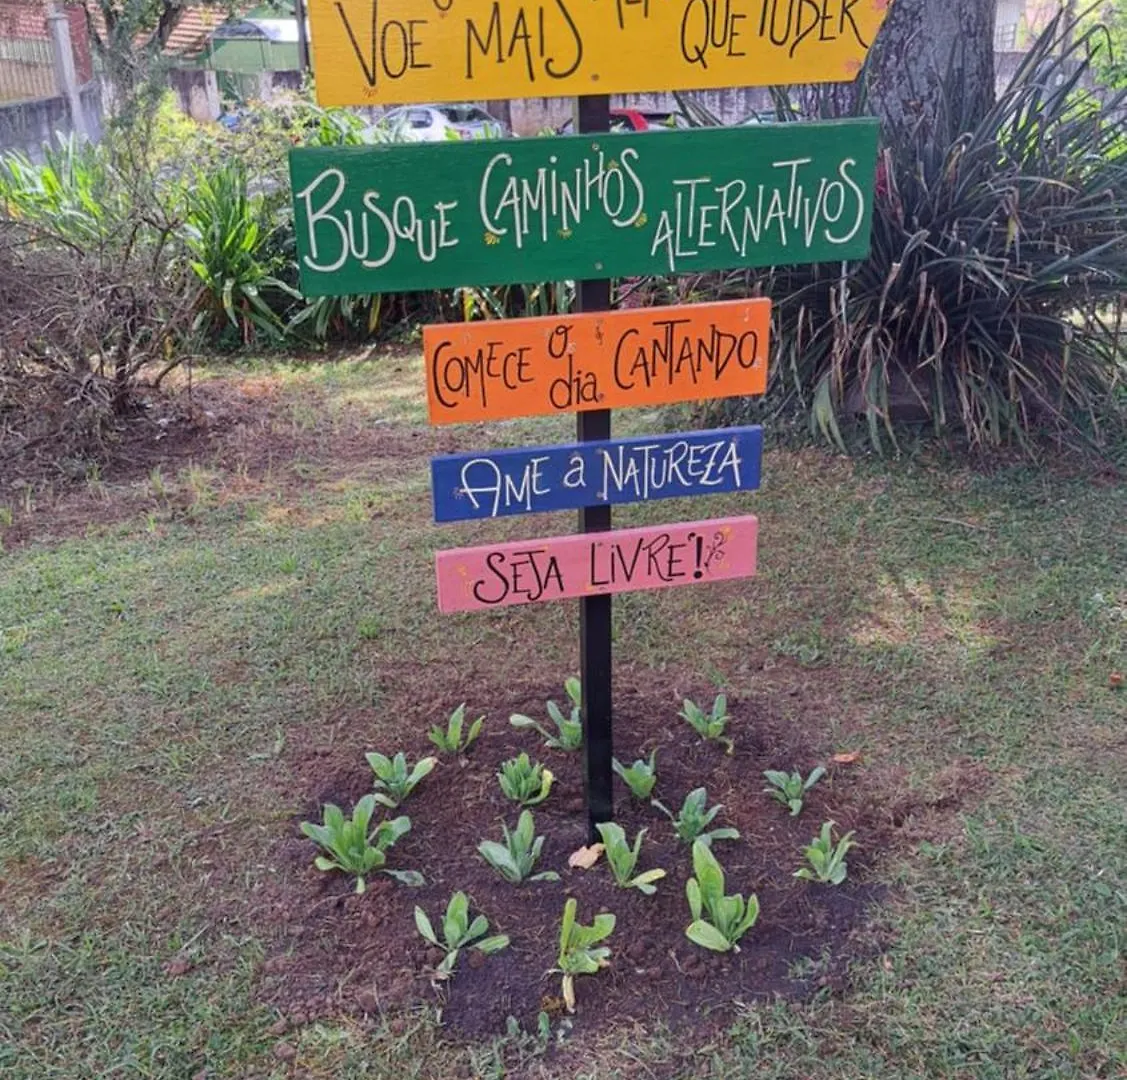 VOE MAIS QUE PUDER
BUSQUE CAMINHOS ALTERNATIVOS
COMECE O dia CANTANDO
AME a NATUREZA
SEJA LIVRE!